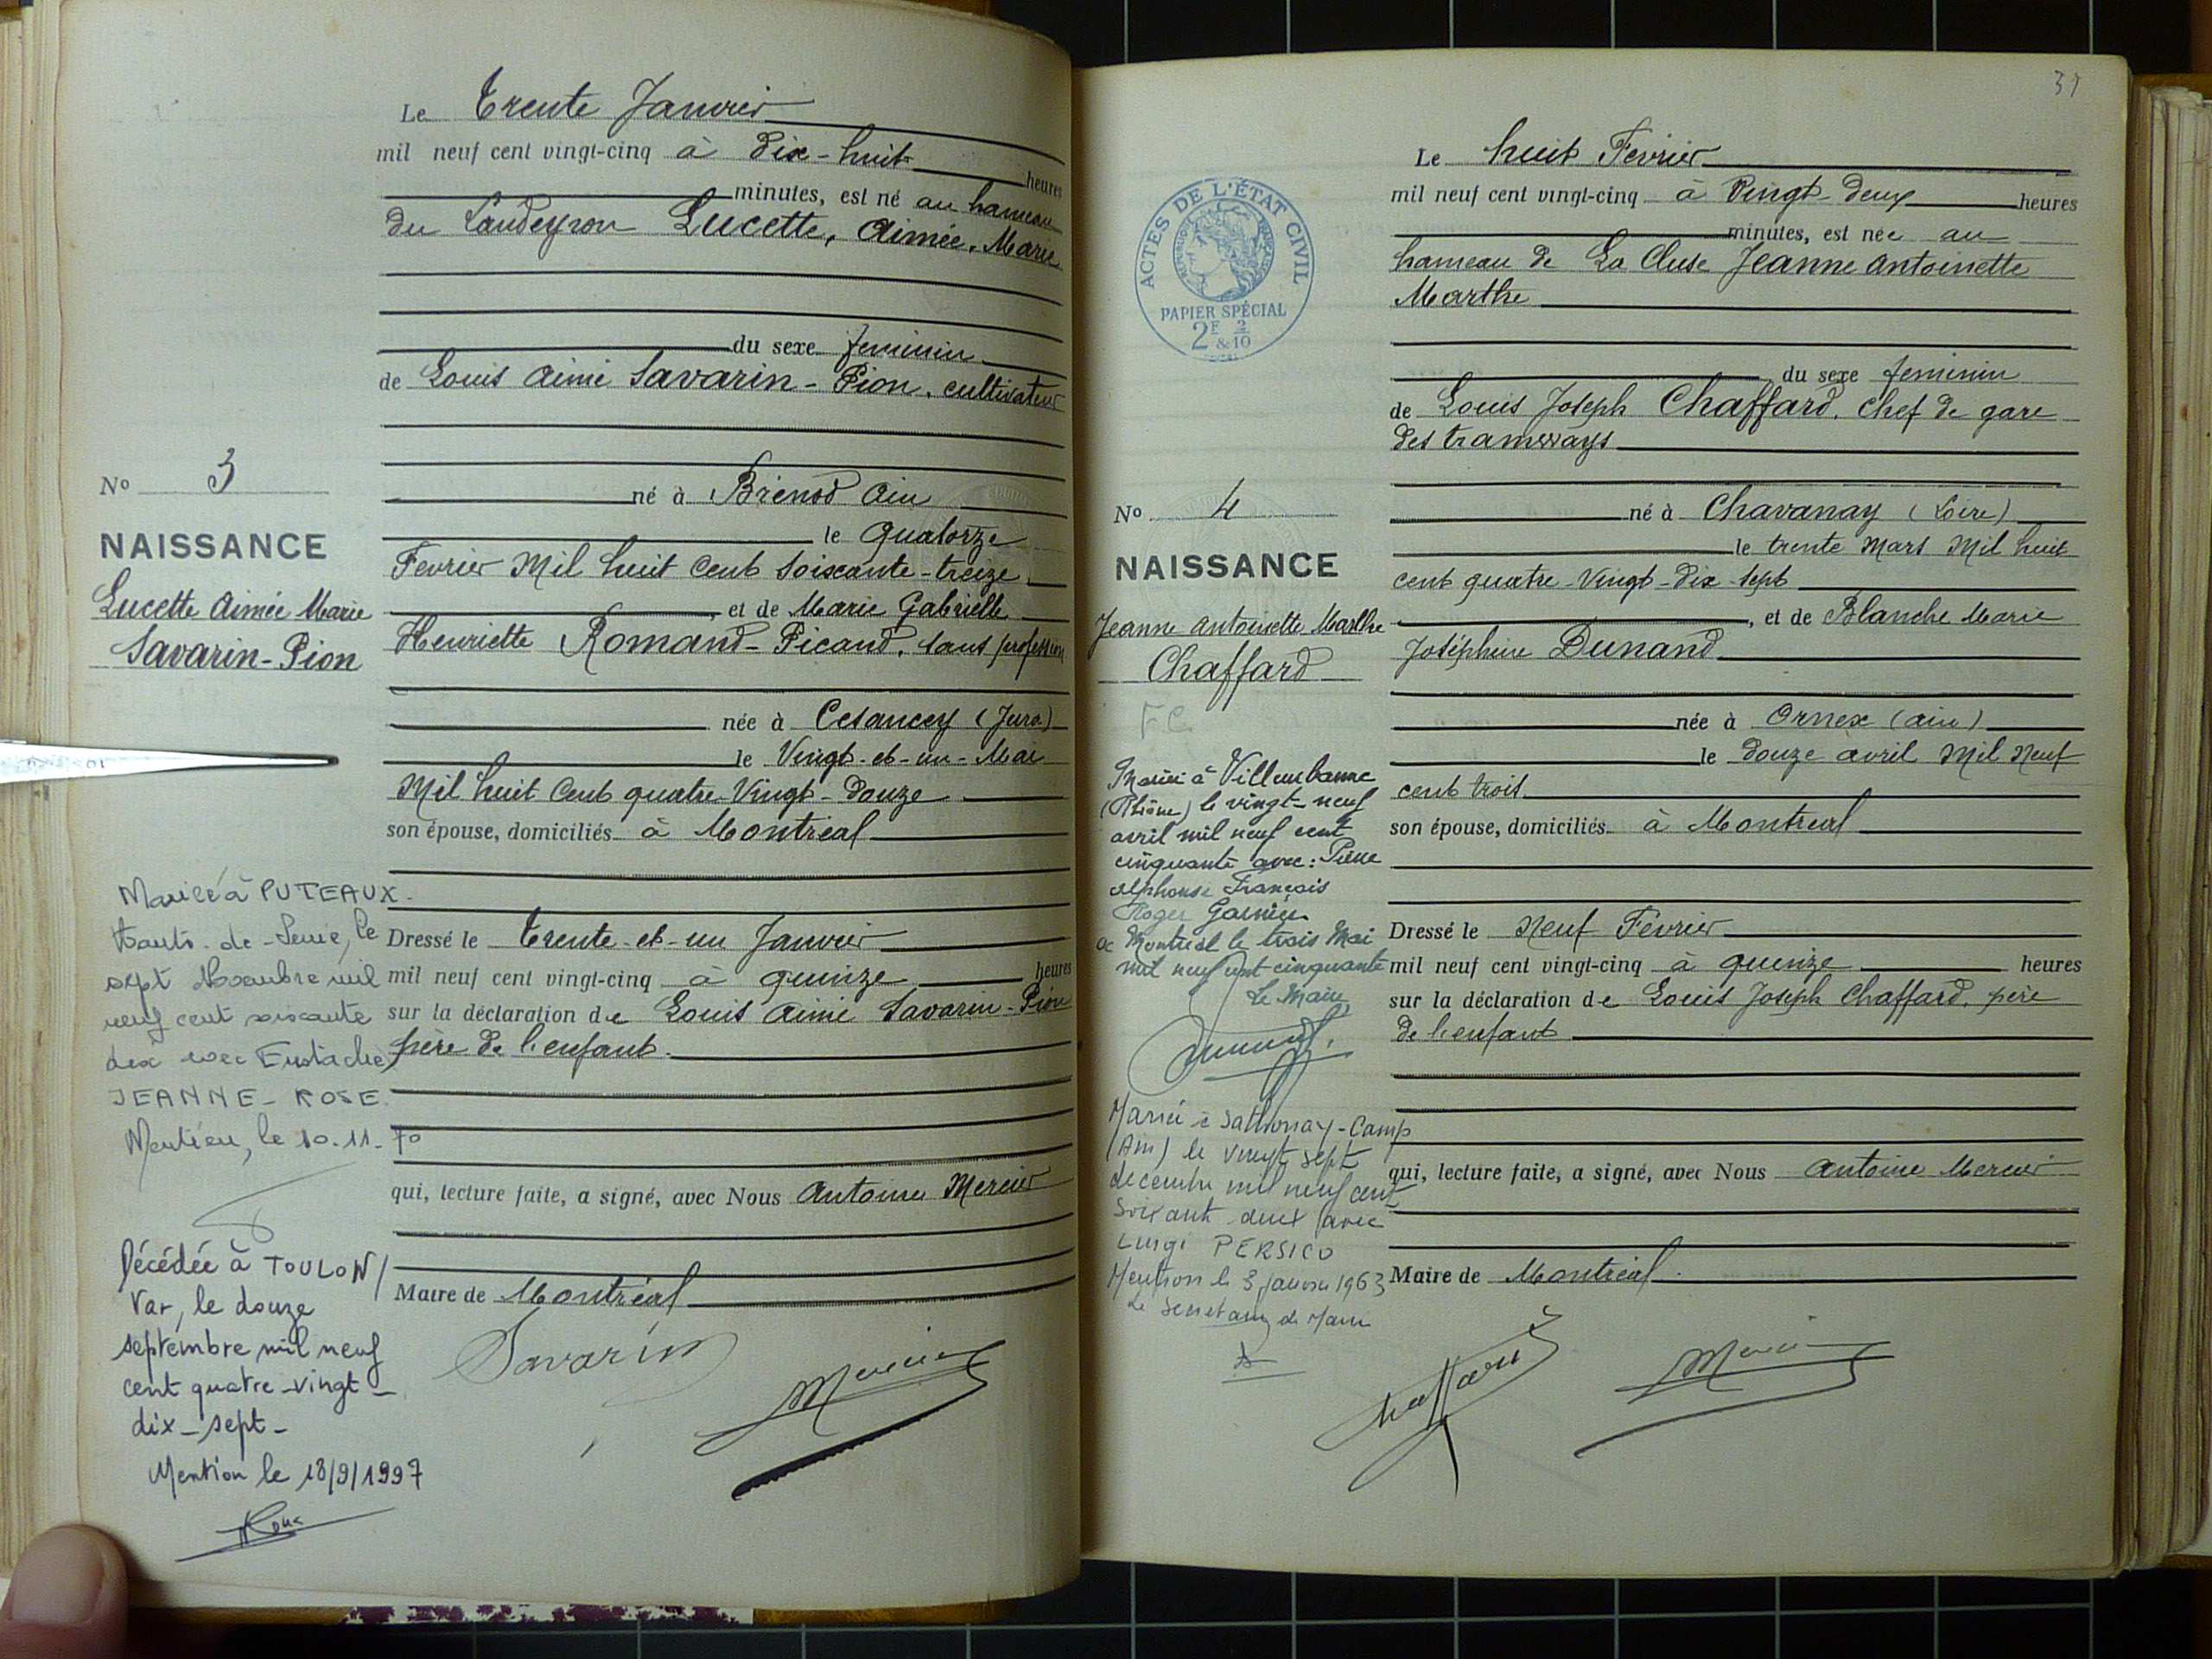 Le Trente Janvier
mil neuf cent vingt-cinq à Dix-huit heures
minutes, est né au hameau
du Landeyron Lucette, Aimée, Marie
du sexe feminin
de Louis Aimé Savarin-Pion, cultivateur
né à Brénod Ain
le Quatorze
Fevrier Mil huit Cent Soixante-treize
et de Marie Gabrielle
Henriette Romand-Picand, sans profession
née à Cesancey (Jura)
le Vingt-et-un-Mai
Mil huit Cent quatre-Vingt-Douze
son épouse, domiciliés à Montréal
Dressé le Trente-et-un Janvier
mil neuf cent vingt-cinq à quinze heures
sur la déclaration de Louis Aimé Savarin-Pion
père de l'enfant.
qui, lecture faite, a signé, avec Nous Antoine Mercier
Maire de Montréal
Savarin
Mercier
No 3
NAISSANCE
Lucette Aimée Marie
Savarin-Pion
Mariée à PUTEAUX
Hauts-de-Seine, le
sept Novembre mil
neuf cent soixante
dix avec Eustache
JEANNE-ROSE
Mention, le 10.11.70
Décédée à TOULON
Var, le douze
septembre mil neuf
cent quatre-vingt-
dix-sept-
Mention le 18/9/1997
31
Le huit Fevrier
mil neuf cent vingt-cinq à Vingt-Deux heures
minutes, est née au
hameau de La Cluse Jeanne Antoinette
Marthe
du sexe feminin
de Louis Joseph Chaffard, Chef de gare
des tramways
né à Chavanay (Loire)
le trente Mars Mil huit
cent quatre-Vingt-Dix-Sept
, et de Blanche Marie
Joséphine Dunand
née à Ornex (Ain)
le Douze Avril Mil Neuf
cent trois.
son épouse, domiciliés à Montréal
Dressé le Neuf Février
mil neuf cent vingt-cinq à quinze heures
sur la déclaration de Louis Joseph Chaffard, père
de l'enfant
qui, lecture faite, a signé, avec Nous Antoine Mercier
Maire de Montréal
Chaffard
Mercier
ACTES DE L'ÉTAT CIVIL
RÉPUBLIQUE FRANÇAISE
PAPIER SPÉCIAL
2F & 2/10
No 4
NAISSANCE
Jeanne Antoinette Marthe
Chaffard
FC
Mariée à Villeurbanne
(Rhône) le vingt-neuf
avril mil neuf cent
cinquante avec: Pierre
Alphonse François
Roger Garnier
Montréal le trois Mai
mil neuf cent cinquante
Le Maire
Mariée à Sathonay-Camp
(Ain) le vingt sept
decembre mil neuf cent
soixante deux avec
Luigi PERSICO
Mention le 3 janvier 1963
Le Secretaire de Mairie